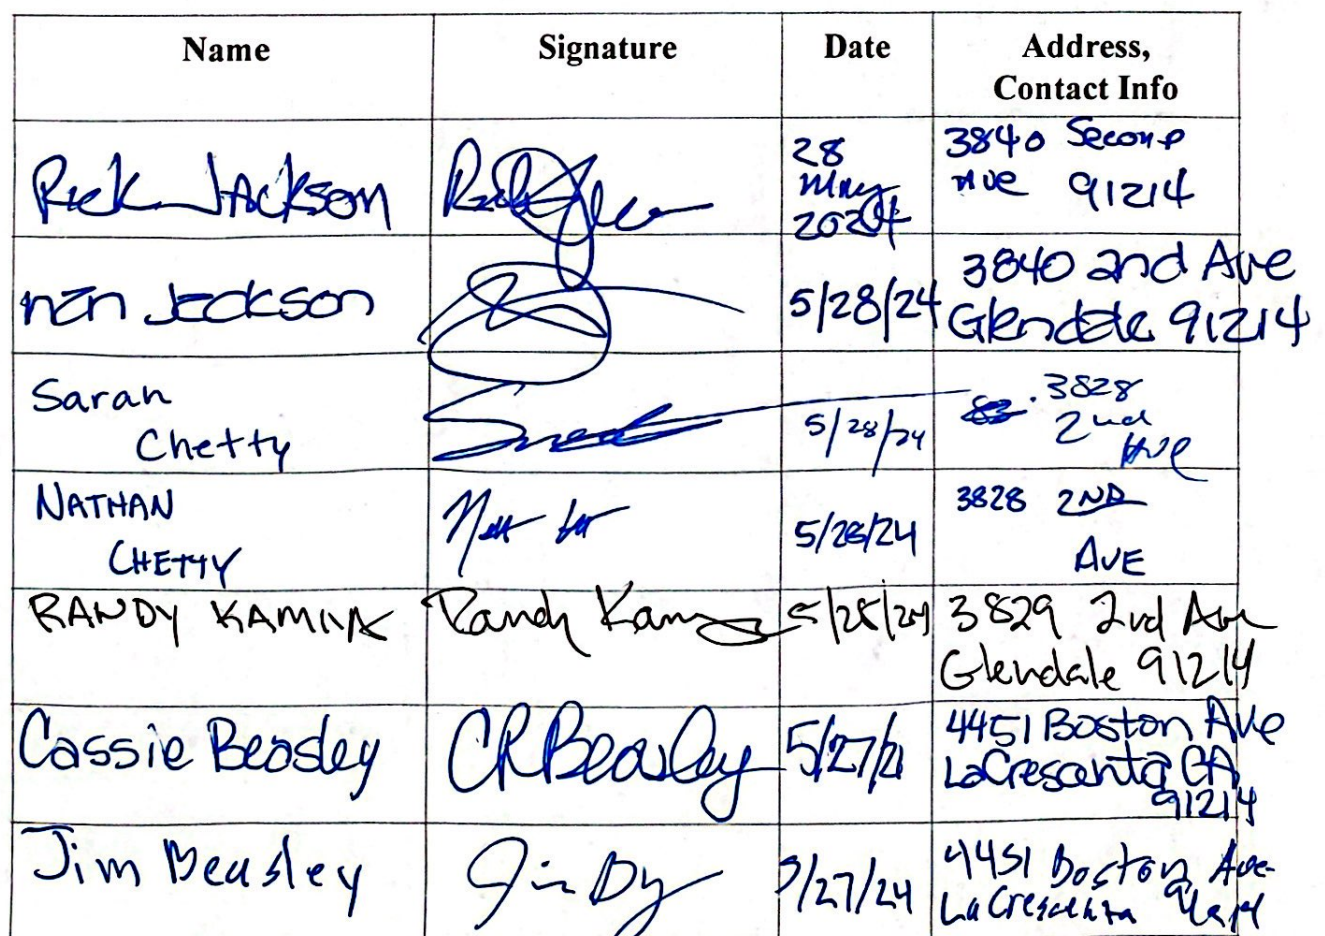 Name Signature Date Address,
Contact Info
Rick Jackson 28 May 2024 3840 Second Ave 91214
nan Jackson 5/28/24 3840 2nd Ave
Glendale 91214
Sarah
Chetty 5/28/24 3828
2nd
Ave
NATHAN
CHETTY 5/28/24 3828 2ND
AVE
RANDY KAMIYA Randy 5/28/24 3829 2nd Ave
Glendale 91214
Cassie Beasley CRBeasley 5/27/2 4451 Boston Ave
LaCrescenta CA
91214
Jim Beasley 5/27/24 4451 Boston Ave
La Crescenta